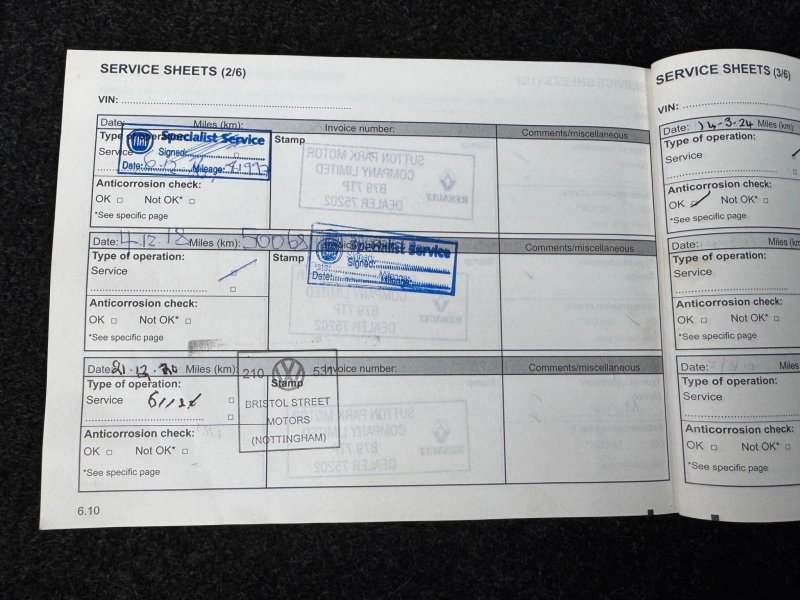 SERVICE SHEETS (2/6)
VIN:
Date: Miles (km): Invoice number: Comments/miscellaneous
Type of operation: Stamp
Service
FIAT Specialist Service
Signed:
Date: Mileage:
Anticorrosion check:
OK Not OK*
*See specific page
SUTTON PARK MOTOR
COMPANY LIMITED
B79 7TP
DEALER 75202
RENAULT
Date: 4.12.18 Miles (km): 50068 Comments/miscellaneous
Type of operation: Stamp
Service
Specialist Service
Signed:
Date: Mileage:
Anticorrosion check:
OK Not OK*
*See specific page
SUTTON PARK MOTOR
COMPANY LIMITED
B79 7TP
DEALER 75202
RENAULT
Date: 21.12.20 Miles (km): Invoice number: Comments/miscellaneous
Type of operation: Stamp
Service
210 531
BRISTOL STREET
MOTORS
(NOTTINGHAM)
Anticorrosion check:
OK Not OK*
*See specific page
SUTTON PARK MOTOR
COMPANY LIMITED
B79 7TP
DEALER 75202
RENAULT
6.10
SERVICE SHEETS (3/6)
VIN:
Date: 14-3-24 Miles (km):
Type of operation:
Service
Anticorrosion check:
OK Not OK*
*See specific page
Date: Miles (km
Type of operation:
Service
Anticorrosion check:
OK Not OK*
*See specific page
Date: Miles (k
Type of operation:
Service
Anticorrosion check:
OK Not OK*
*See specific page